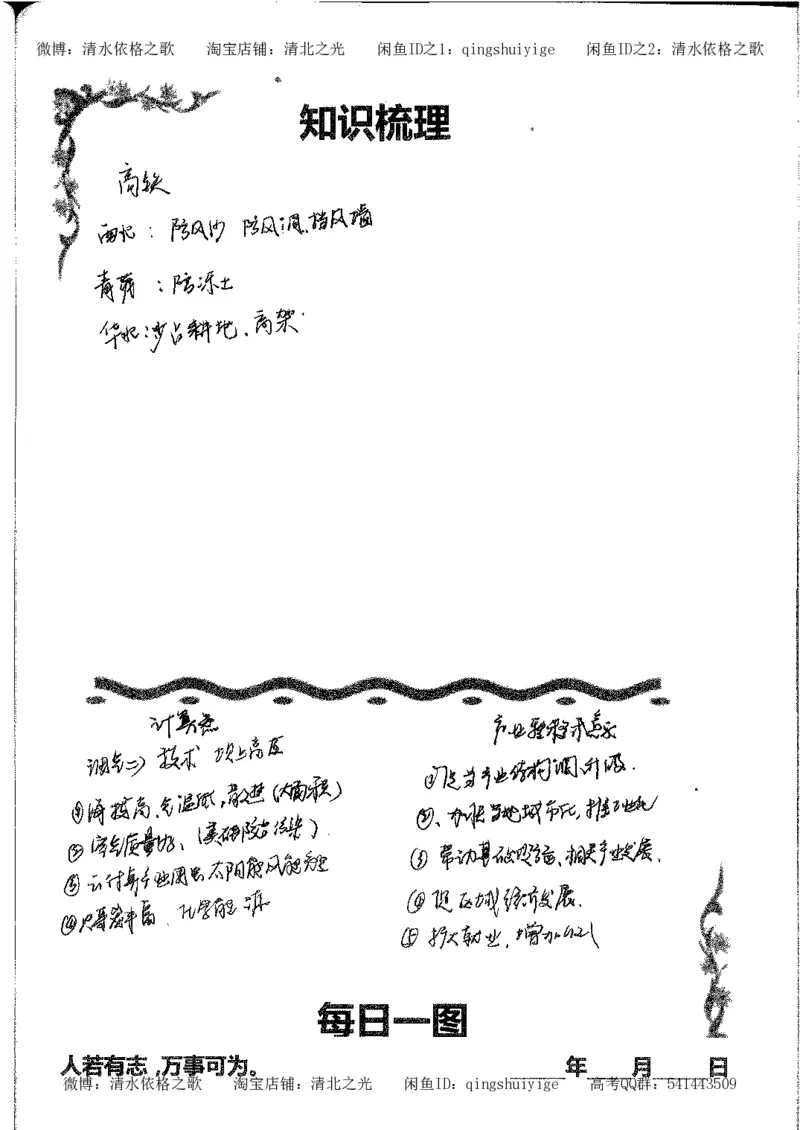 微博：清水依格之歌 淘宝店铺：清北之光 闲鱼ID之1：qingshuiyige 闲鱼ID之2：清水依格之歌
知识梳理
高铁
西北：防风沙 防风洞、挡风墙
青藏：防冻土
华北：少占耕地、高架
计算
技术 坝上高原
①海拔高、气温低，散热（大面积）
②空气质量好、
③云计算产业园 太阳能风能
④ 丰富
产业
①促当产业结构调、升级.
②、加快当地城市化，推工业化
③ 带动基础设施、相关产业发展.
④ 促区域经济发展.
⑤ 扩大就业，增加收入
每日一图
人若有志，万事可为。 年 月 日
微博：清水依格之歌 淘宝店铺：清北之光 闲鱼ID：qingshuiyige 高考QQ群：541443509